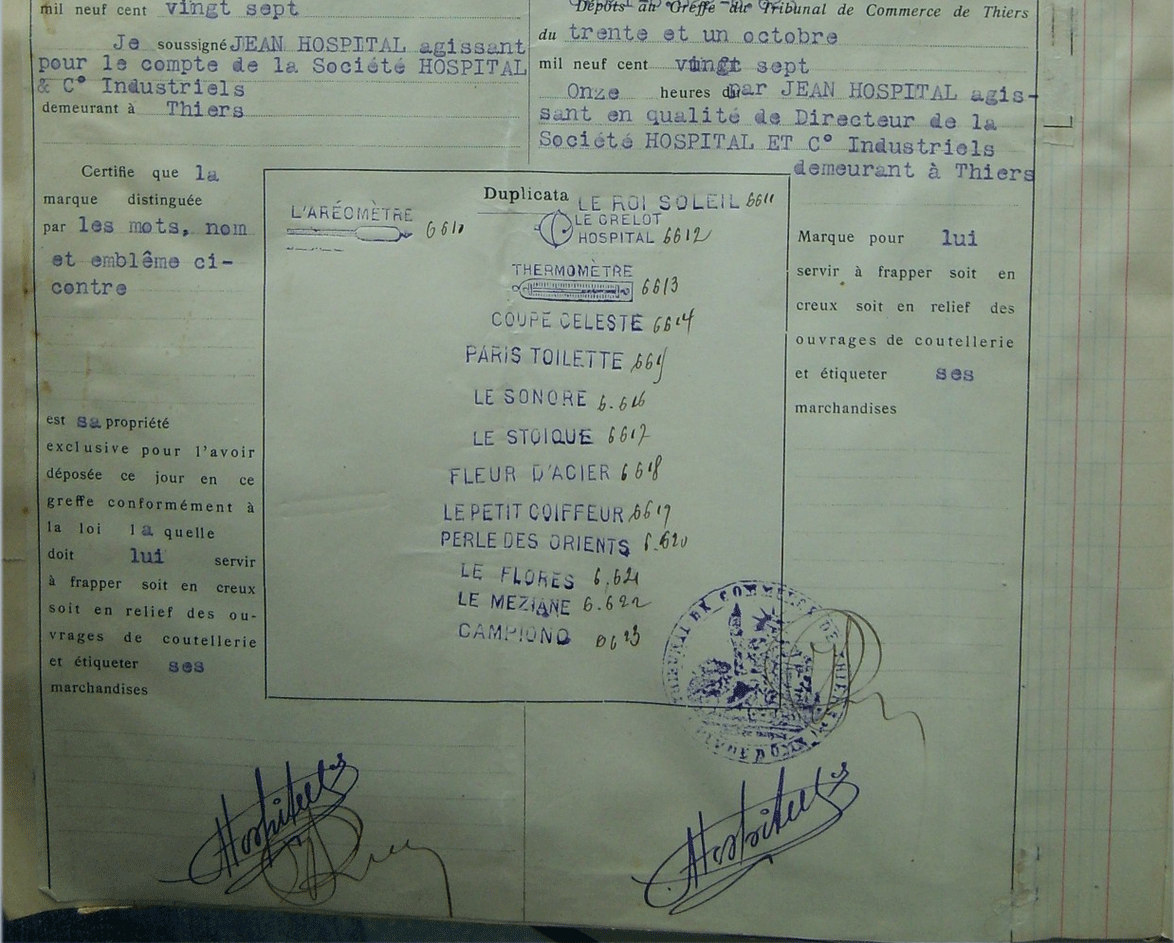 mil neuf cent vingt sept
Je soussigné JEAN HOSPITAL agissant
pour le compte de la Société HOSPITAL
& C° Industriels
demeurant à Thiers
Certifie que la
marque distinguée
par les mots, nom
et emblême ci-
contre
est sa propriété
exclusive pour l'avoir
déposée ce jour en ce
greffe conformément à
la loi la quelle
doit lui servir
à frapper soit en creux
soit en relief des ou-
vrages de coutellerie
et étiqueter ses
marchandises
Dépôts au Greffe du Tribunal de Commerce de Thiers
du trente et un octobre
mil neuf cent vingt sept
Onze heures du par JEAN HOSPITAL agis-
sant en qualité de Directeur de la
Société HOSPITAL ET C° Industriels
demeurant à Thiers
Duplicata
L'ARÉOMÈTRE 6610
LE ROI SOLEIL 6611
LE GRELOT
HOSPITAL 6612
THERMOMÈTRE
6613
COUPE CELESTE 6614
PARIS TOILETTE
LE SONORE 6.616
LE STOIQUE 6617
FLEUR D'ACIER 6618
LE PETIT COIFFEUR 6619
PERLE DES ORIENTS 6.620
LE FLORES 6.621
LE MEZIANE 6.622
CAMPIONO 6623
Marque pour lui
servir à frapper soit en
creux soit en relief des
ouvrages de coutellerie
et étiqueter ses
marchandises
TRIBUNAL DE COMMERCE DE THIERS
PUY DE DOME
Hospital
Hospital